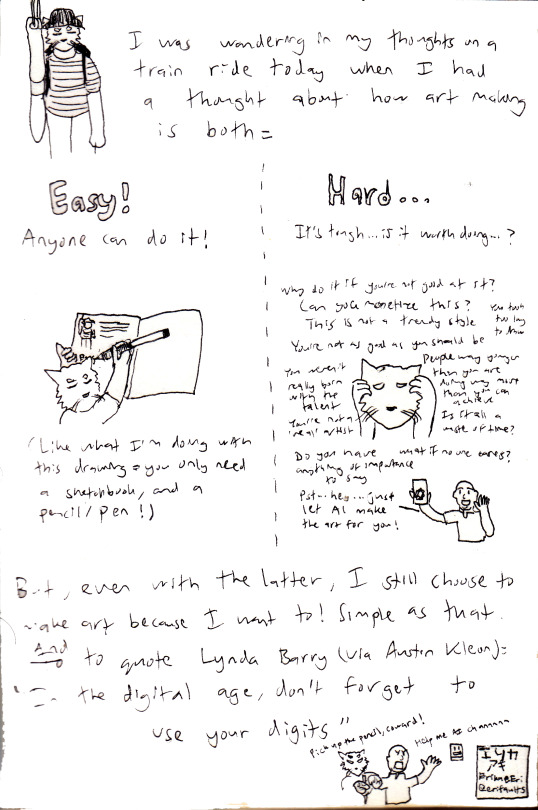 I was wandering in my thoughts on a
train ride today when I had
a thought about how art making
is both =
Easy!
Anyone can do it!
(Like what I'm doing with
this drawing = you only need
a sketchbook, and a
pencil/pen!)
Hard...
It's tough... is it worth doing...?
Why do it if you're not good at it?
Can you monetize this?
This is not a trendy style
You took
too long
to
You're not as good as you should be
You weren't
really born
with the
talent
You're not a
"real" artist
People way younger
than you are
doing way more
than you can
achieve
Is it all a
waste of time?
Do you have
anything of importance
to say
What if no one cares?
Pst... hey... just
let AI make
the art for you!
But, even with the latter, I still choose to
make art because I want to! Simple as that.
And to quote Lynda Barry (via Austin Kleon) =
"In the digital age, don't forget to
use your digits"
Pick up the pencil, coward!
Help me AI